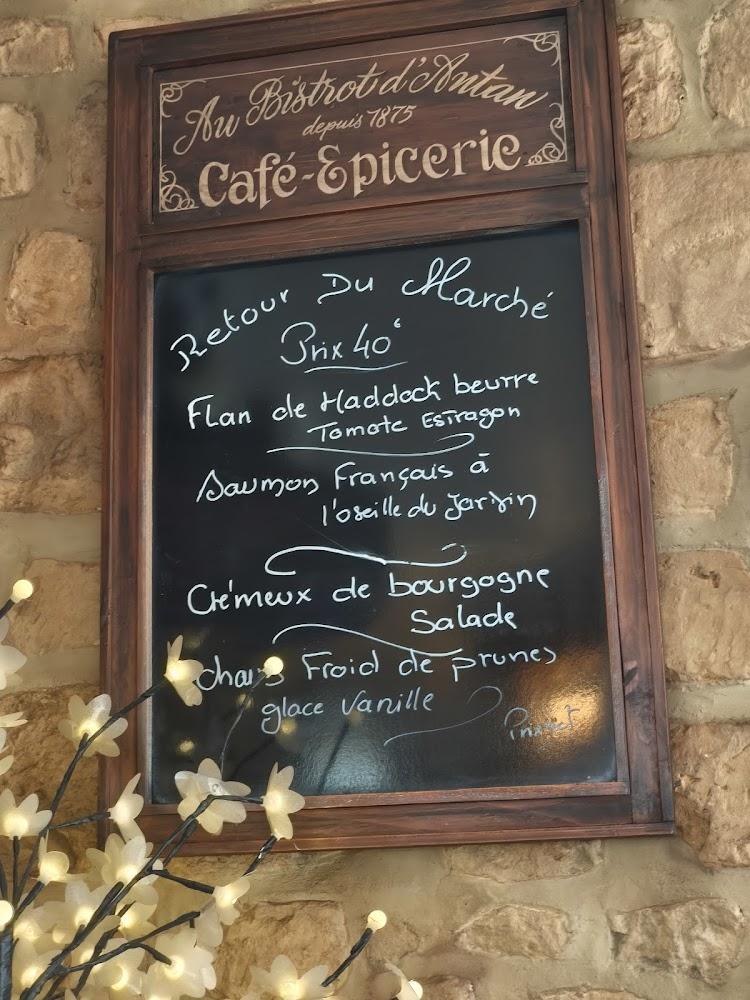 Au Bistrot d'Antan
depuis 1875
Café-Epicerie
Retour Du Marché
Prix 40€
Flan de Haddock beurre
Tomate Estragon
Saumon Français à
l'oseille du Jardin
Crémeux de bourgogne
Salade
chaud Froid de prunes
glace Vanille
Prix net